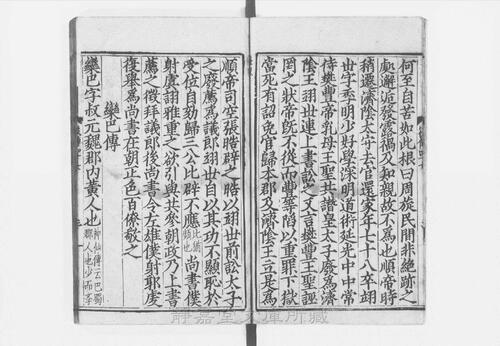 何至自苦如此根曰周旋民間非絕跡之
處邂逅發露禍及知親故不為也順帝時
稍遷濟陰太守去官還家年七十八卒翊
世字季明少好學深明道術延光中中常
侍樊豐帝乳母王聖共譖皇太子廢為濟
陰王翊世連上書訟之又言樊豐王聖誣
罔之狀帝旣不從而豐等陷以重罪下獄
當死有詔免官歸本郡及濟陰王立是為
順帝司空張晧辟之晧以翊世前訟太子
之廢薦為議郎翊世自以其功不顯恥於
受位自劾歸三公比辟不應比猶頻也尚書僕
射虞詡雅重之欲引與共參朝政乃上書
薦之徵拜議郎後尚書令左雄僕射郭虔
復舉為尚書在朝正色百僚敬之
欒巴傳
欒巴字叔元魏郡內黃人也神仙傳云巴蜀郡人也少而學
静嘉堂文庫所蔵